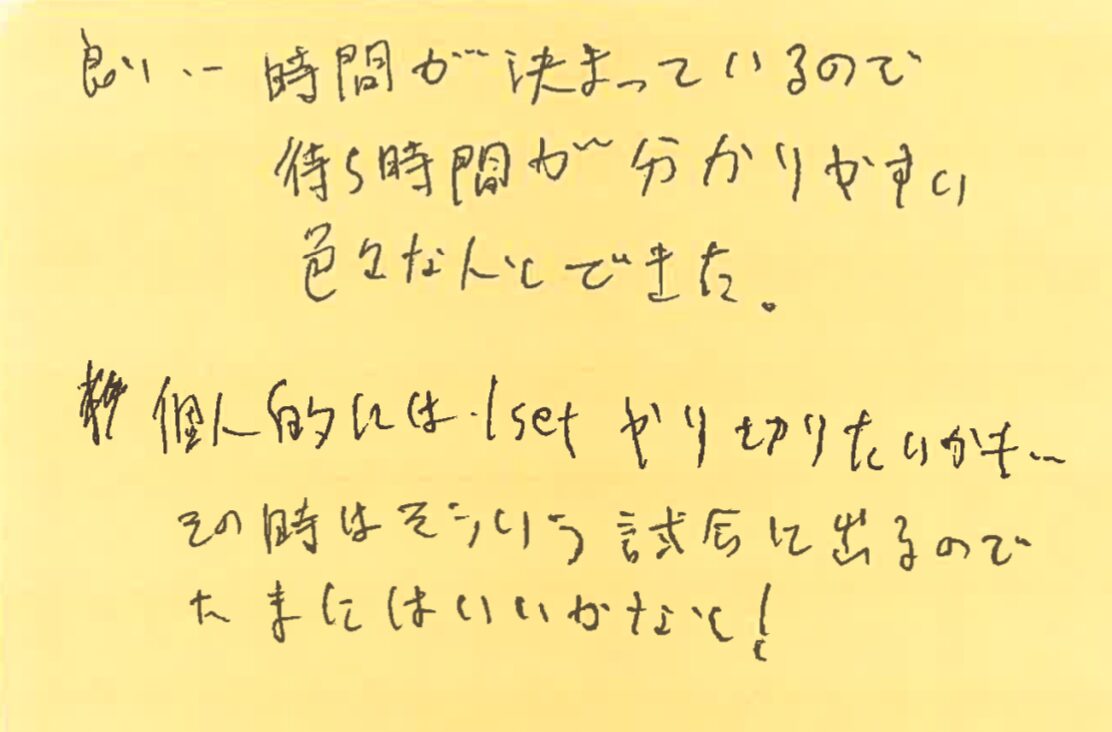 良い… 時間が決まっているので
待ち時間が分かりやすい
色々な人とできた。
個人的には.1set やり切りたいかも…
その時はそういう試合に出るので
たまにはいいかなと!